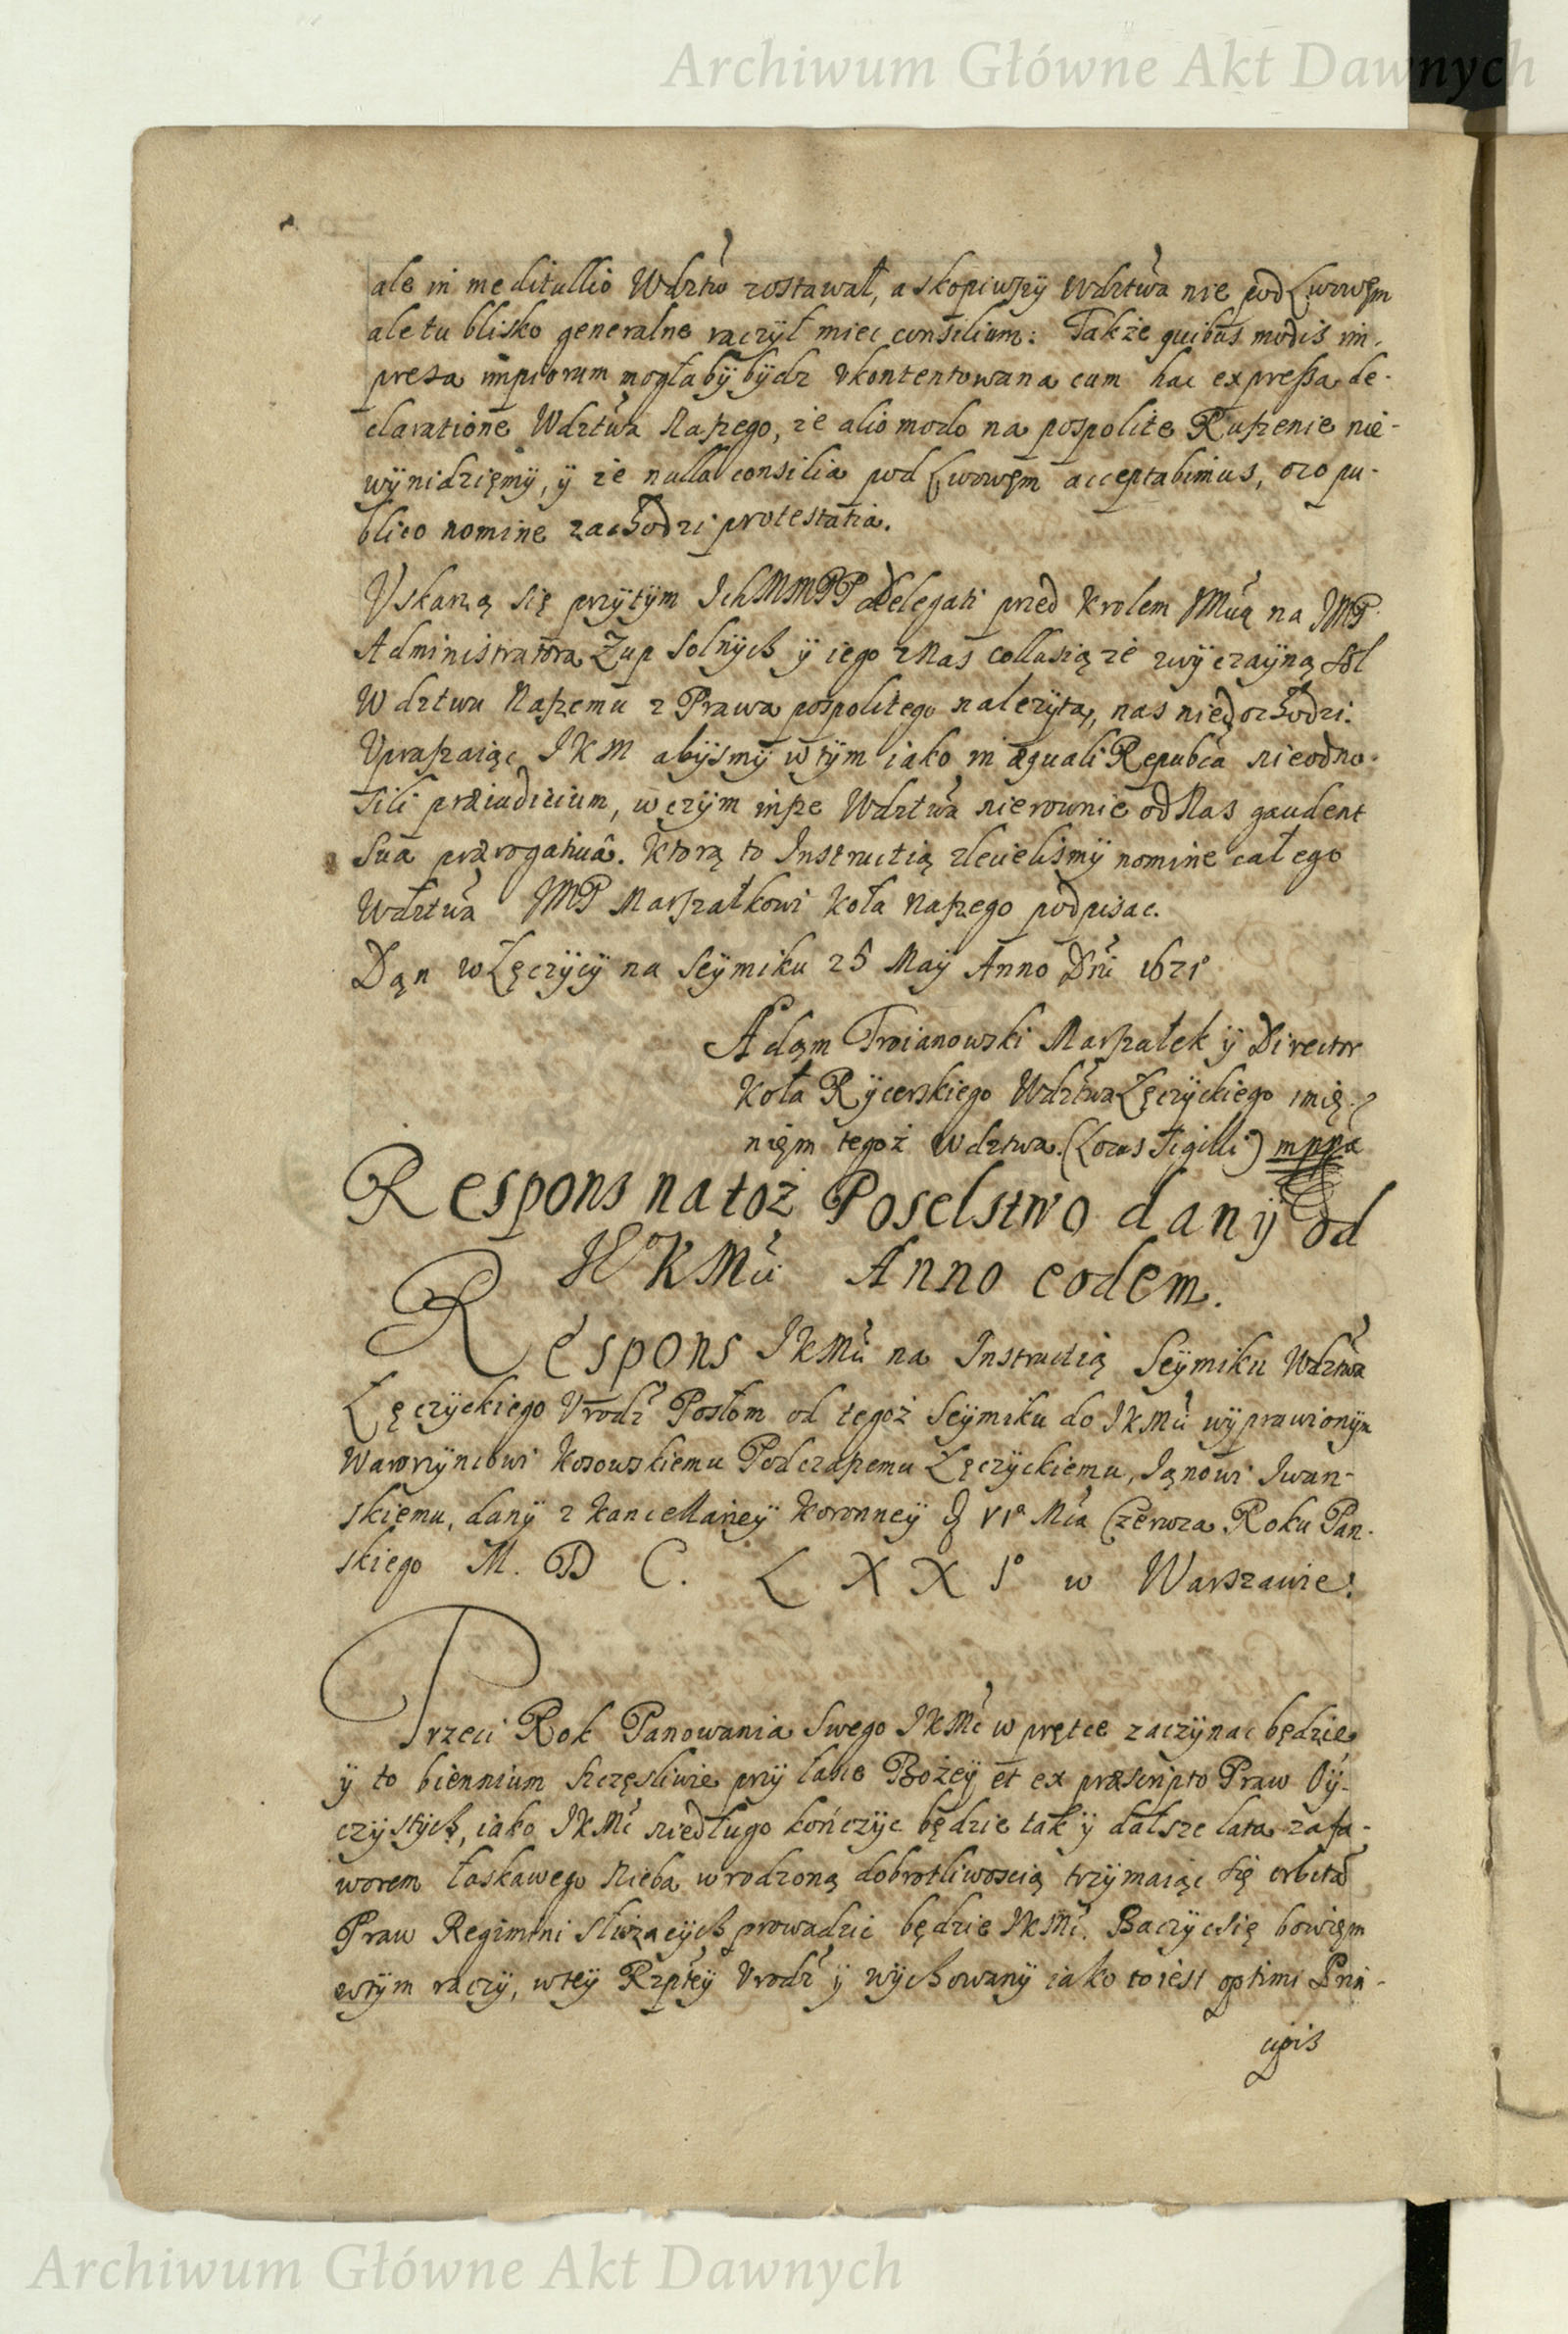 Archiwum Główne Akt Dawnych
ale in meditullio Wdztw zostawał, a skopiwszy Wdztwa nie pod Lwowęm
ale tu blisko generalne raczył miec consilium: Także quibus modis im-
presa impiorum mogłaby bydz vkontentowana cum hac expressa de-
claratione Wdztwa Naszego, że alio modo na pospolite Ruszenie nie-
wynidzięmy, y że nulla consilia pod Lwowęm acceptabimus, oco pu-
blico nomine zachodzi protestatia.
Vskarzą się przytym IchMMPP delegati przed Krolem JMcią na JMP
Administratora Zup Solnych y iego z Nas collusią że zwyczayną Sol
Wdztwu Naszemu z Prawa pospolitego należytą, nas niedochodzi.
Vpraszaiąc JKM abysmy w tym iako in æquali Repubca nieodno-
sili præiudicium, w czym insze Wdztwa nierownie od Nas gaudent
sua prærogativâ. Ktorą to Instructią zlecielismy nomine całego
Wdztwa JMP Marszałkowi Koła Naszego podpisac.
Dąn w Lęczycy na Seymiku 25 May Anno Dni 1671°
Adąm Troianowski Marszałek y Director
Koła Rycerskiego Wdztwa Lęczyckiego imię-
nięm tegoż Wdztwa. (Locus Sigilli) mppa
Respons na toż Poselstwo dany od
JKMci Anno eodem.
Respons JKMci na Instructią Seymiku Wdztwa
Lęczyckiego Vrodz Posłom od tegoż Seymiku do JKMci wyprawionym
Wawrzyncowi Kosowskiemu Podczaszemu Lęczyckiemu, Iąnowi Iwan-
skiemu, dany z Kancellariey Koronney VI° Mca Czerwca Roku Pan-
skiego M. D C. L X X I° w Warszawie.
Trzeci Rok Panowania Swego JKMc w prętce zaczynac będzie
y to biennium szczęsliwie przy łasce Bożey et ex præscripto Praw Oy-
czystych, iako JKMc niedługo kończyc będzie tak y dalsze lata za fa-
worem łaskawego Nieba wrodzoną dobrotliwoscią trzymaiąc się orbita
Praw Regimini służących prowadzic będzie JKMc. Baczyc się bowięm
w tym raczy, w tey Rzptey Vrodz y wychowany iako to iest optimi Prin-
cipis
Archiwum Główne Akt Dawnych